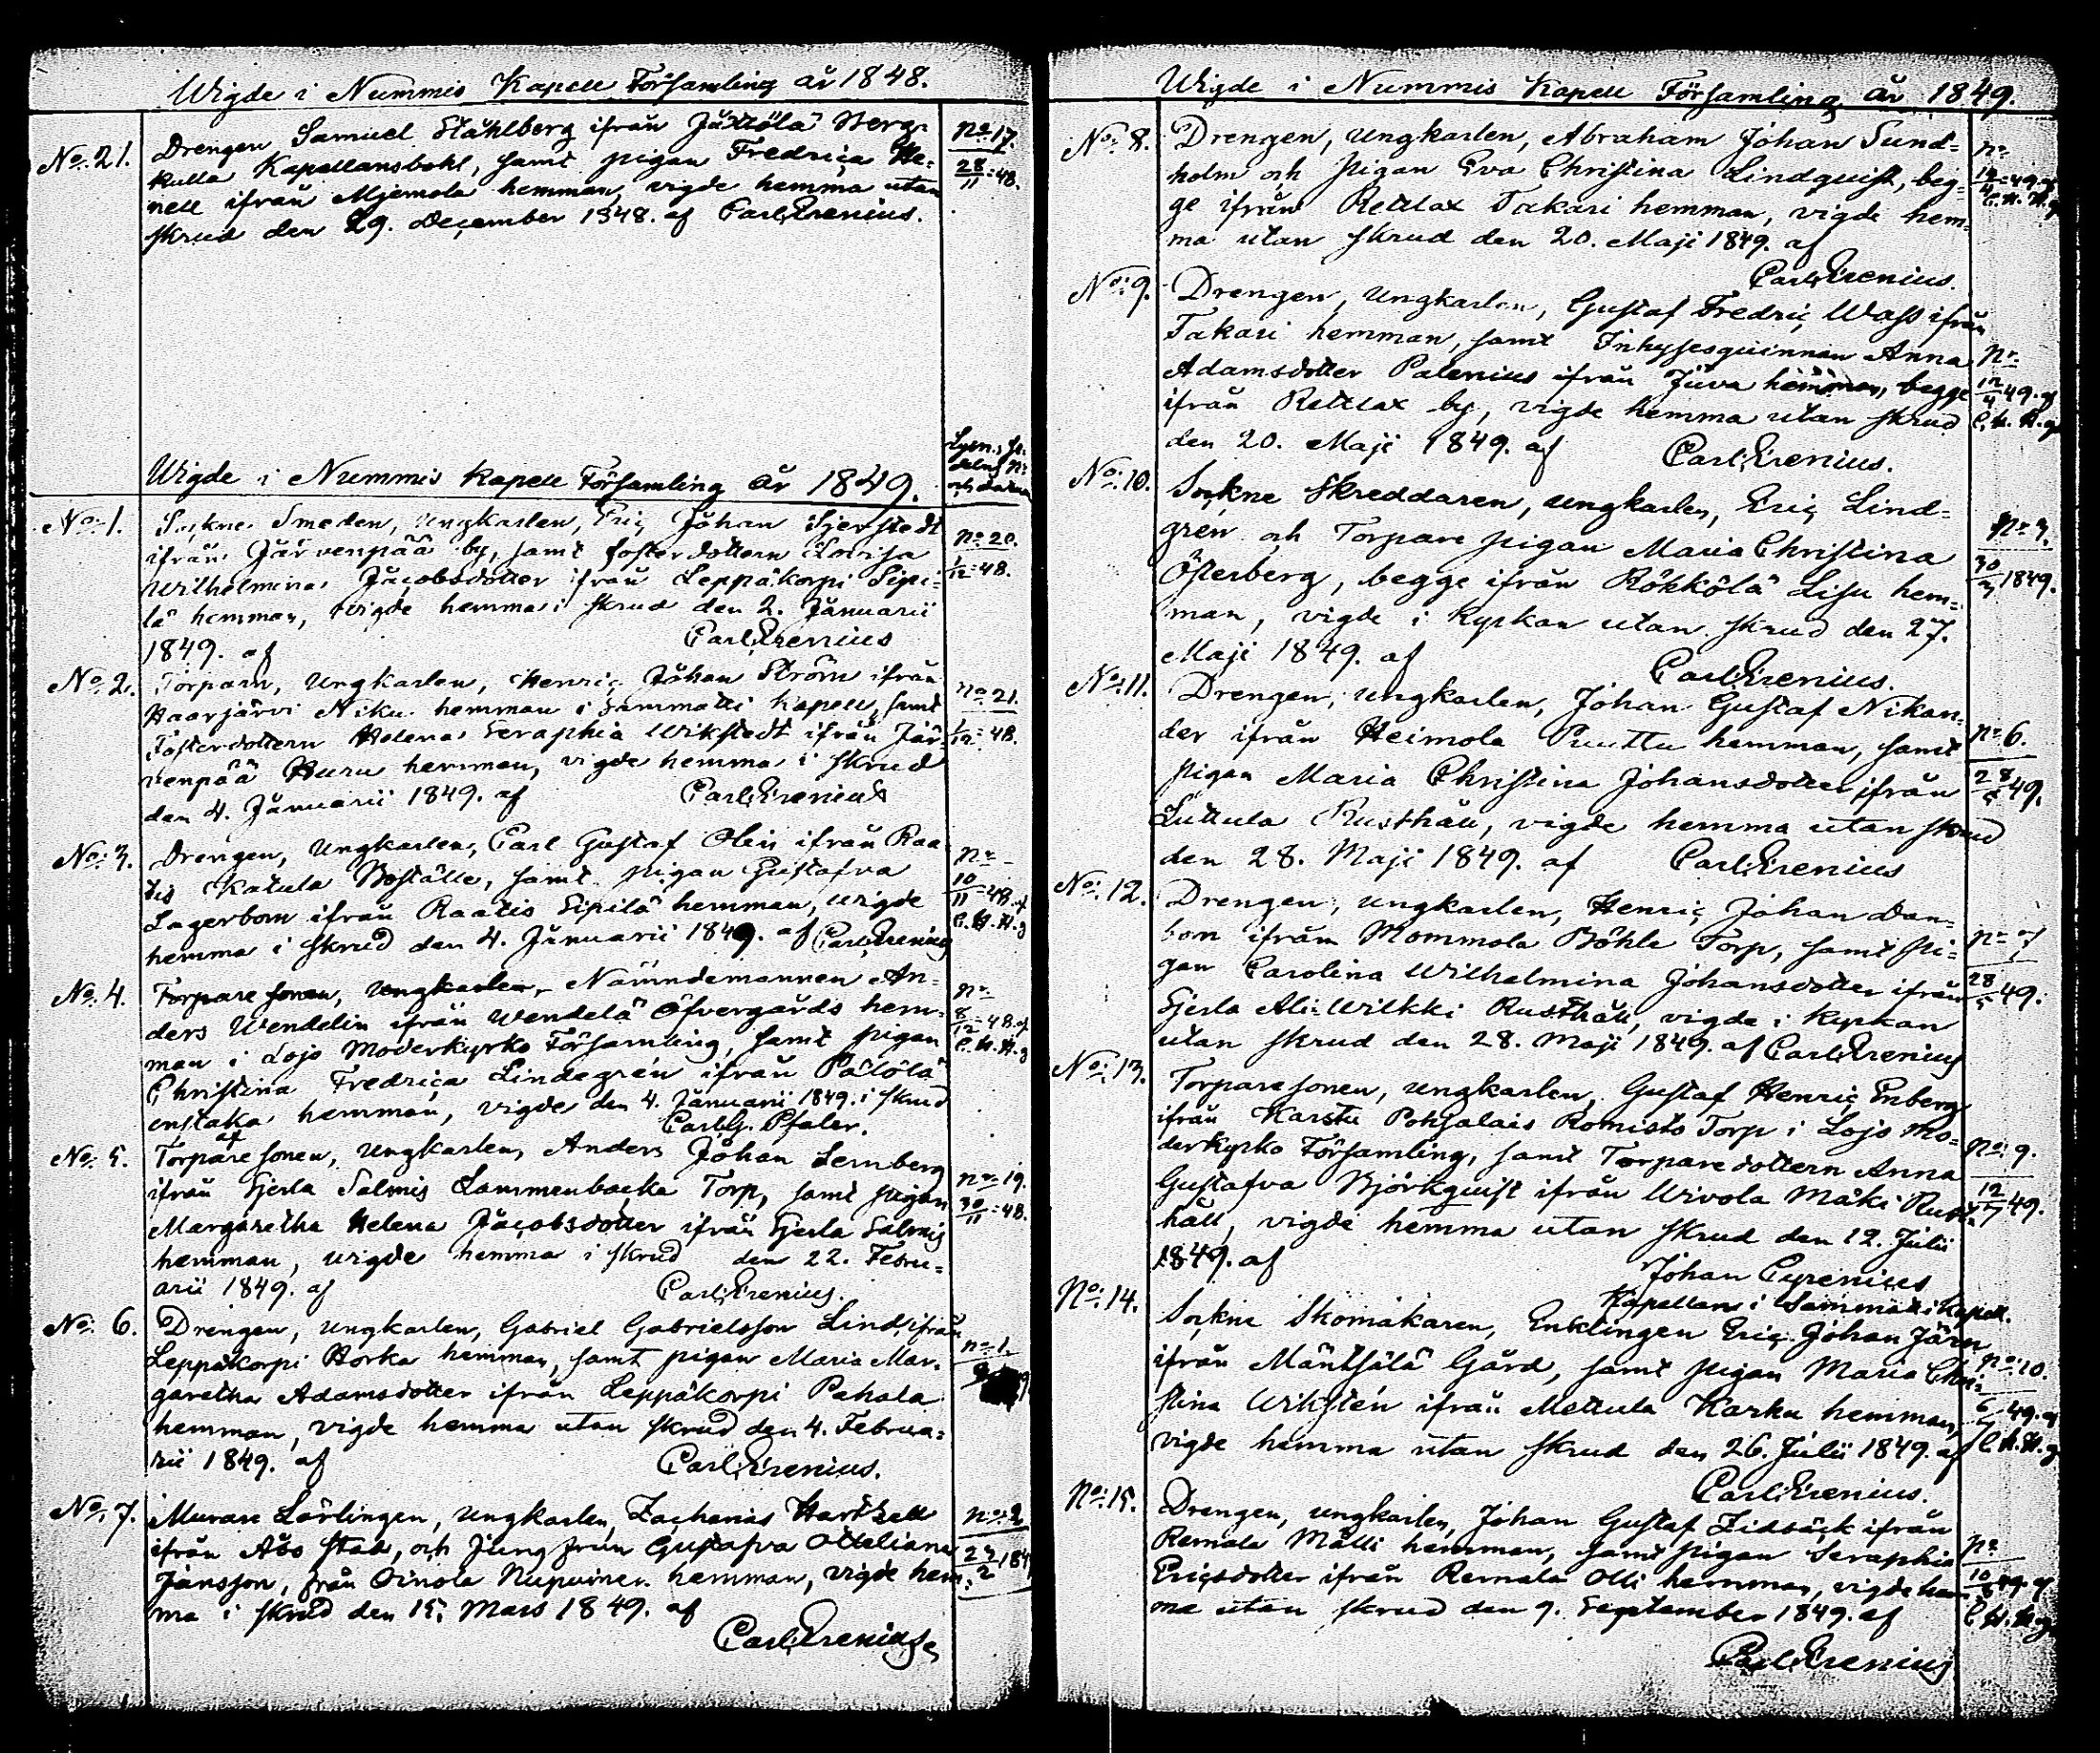 Wigde i Nummis Kapell Församling år 1848.
No: 21. Drengen Samuel Ståhlberg ifrån Jättölä Berg-
kulla Kapellansbohl, samt pigan Fredrica He-
nell ifrån Mjemola hemman, vigde hemma utan
skrud den 29. December 1848. af Carl Erenius.
no 17.
28/11 = 48.
Wigde i Nummis Kapell Församling år 1849.
Lysn. se-
delns no
och datum
No: 1. Sockne Smeden, Ungkarlen, Eric Johan Sjerstedt
ifrån Järvenpää by, samt fosterdottern Lovisa
Wilhelmina Jacobsdotter ifrån Leppäkorpi Sipi-
lä hemman, vigde hemma i skrud den 2. Januarii
1849. af Carl Erenius
no 20.
1/12 = 48.
No: 2. Torparn, Ungkarlen, Henric Johan Ström ifrån
Haarjärvi Niku hemman i Sammatti Kapell, samt
Fosterdottern Helena Seraphia Wikstedt ifrån Jär-
venpää Huru hemman, vigde hemma i skrud
den 4. Januarii 1849. af Carl Erenius
no 21.
1/12 = 48.
No: 3. Drengen, Ungkarlen, Carl Gustaf Olin ifrån Raa-
tis Katula Boställe, samt pigan Gustafva
Lagerbom ifrån Raatis Sipilä hemman, vigde
hemma i skrud den 4. Januarii 1849. af Carl Erenius
no
10/11 = 48. af
C. H. H. g
No: 4. Torpare sonen, Ungkarlen, Nämndemannen An-
ders Wendelin ifrån Wendelä Öfvergårds hem-
man i Lojo Moderkyrko Församling, samt pigan
Christina Fredrica Lindegrén ifrån Pälölä
enstaka hemman, vigde den 4. Januarii 1849. i skrud
af Carl G. Pfaler.
no
8/12 = 48. af
C. H. H. g
No: 5. Torpare sonen, Ungkarlen, Anders Johan Lernberg
ifrån Hjerla Salmis Lammenbacka Torp, samt pigan
Margaretha Helena Jacobsdotter ifrån Hjerla Salmis
hemman, vigde hemma i skrud den 22. Febru-
arii 1849. af Carl Erenius.
no 19.
30/11 = 48.
No: 6. Drengen, Ungkarlen, Gabriel Gabrielsson Lind, ifrån
Leppäkorpi Horka hemman, samt pigan Maria Mar-
garetha Adamsdotter ifrån Leppäkorpi Pahala
hemman, vigde hemma utan skrud den 4. Februa-
rii 1849. af Carl Erenius.
no 1.
No: 7. Murare Lärlingen, Ungkarlen, Zacharias Hartzell
ifrån Åbo stad, och Jungfrun Gustafva Ottiliana
Jansson, från Oinola Nupuinen hemman, vigde hem-
ma i skrud den 15. Mars 1849. af
Carl Erenius
no: 2
Wigde i Nummis Kapell Församling år 1849.
No: 8. Drengen, Ungkarlen, Abraham Johan Sund-
holm och Pigan Eva Christina Lindquist, beg-
ge ifrån Retlax Takari hemman, vigde hem-
ma utan skrud den 20. Maji 1849. af
Carl Erenius.
no
12/4 = 49. af
C. H. H. g
No: 9. Drengen, Ungkarlen, Gustaf Fredric Wass ifrån
Takari hemman, samt Inhysesquinnan Anna
Adamsdotter Palenius ifrån Juva hemman, begge
ifrån Retlax by, vigde hemma utan skrud
den 20. Maji 1849. af Carl Erenius.
no
12/4 49. af
C. H. H. g
No: 10. Sockne Skreddaren, Ungkarlen, Eric Lind-
grén och Torpare pigan Maria Christina
Österberg, begge ifrån Rökkölä Lisu hem-
man, vigde i Kyrkan utan skrud den 27.
Maji 1849. af Carl Erenius.
no 3.
30/3 1849.
No: 11. Drengen, Ungkarlen, Johan Gustaf Nikan-
der ifrån Heimola Puuttu hemman, samt
pigan Maria Christina Johansdotter ifrån
Luttula Rusthåll, vigde hemma utan skrud
den 28. Maji 1849. af Carl Erenius
no 6.
28/5 49.
No: 12. Drengen, Ungkarlen, Henric Johan Dan-
bom ifrån Mommola Böhle Torp, samt Pi-
gan Carolina Wilhelmina Johansdotter ifrån
Hjerla Ali-Wilkki Rusthåll, vigde i Kyrkan
utan skrud den 28. Maji 1849. af Carl Erenius
no 7
28/5 49.
No: 13. Torpare sonen, Ungkarlen, Gustaf Henric Enberg
ifrån Karstu Pohjalais Romisto Torp i Lojo Mo-
derkyrko Församling, samt Torpare dottern Anna
Gustafva Björkquist ifrån Uivola Mäki Rust-
håll, vigde hemma utan skrud den 12. Julii
1849. af Johan Cyrenius
Kapellan i Sammatti Kapell.
no: 9.
12/7 49.
No: 14. Sockne Skomakaren, Enklingen Eric Johan Järn
ifrån Mäntsälä Gård, samt pigan Maria Chri-
stina Wikstén ifrån Mettula Karku hemman,
vigde hemma utan skrud den 26. Julii 1849. af
Carl Erenius.
no: 10.
6/7 49. af
C. H. H. g
No: 15. Drengen, Ungkarlen, Johan Gustaf Lidbäck ifrån
Remala Mälli hemman, samt pigan Seraphia
Ericsdotter ifrån Remala Olli hemman, vigde hem-
ma utan skrud den 9. September 1849. af
Carl Erenius
no
C. H. H. g